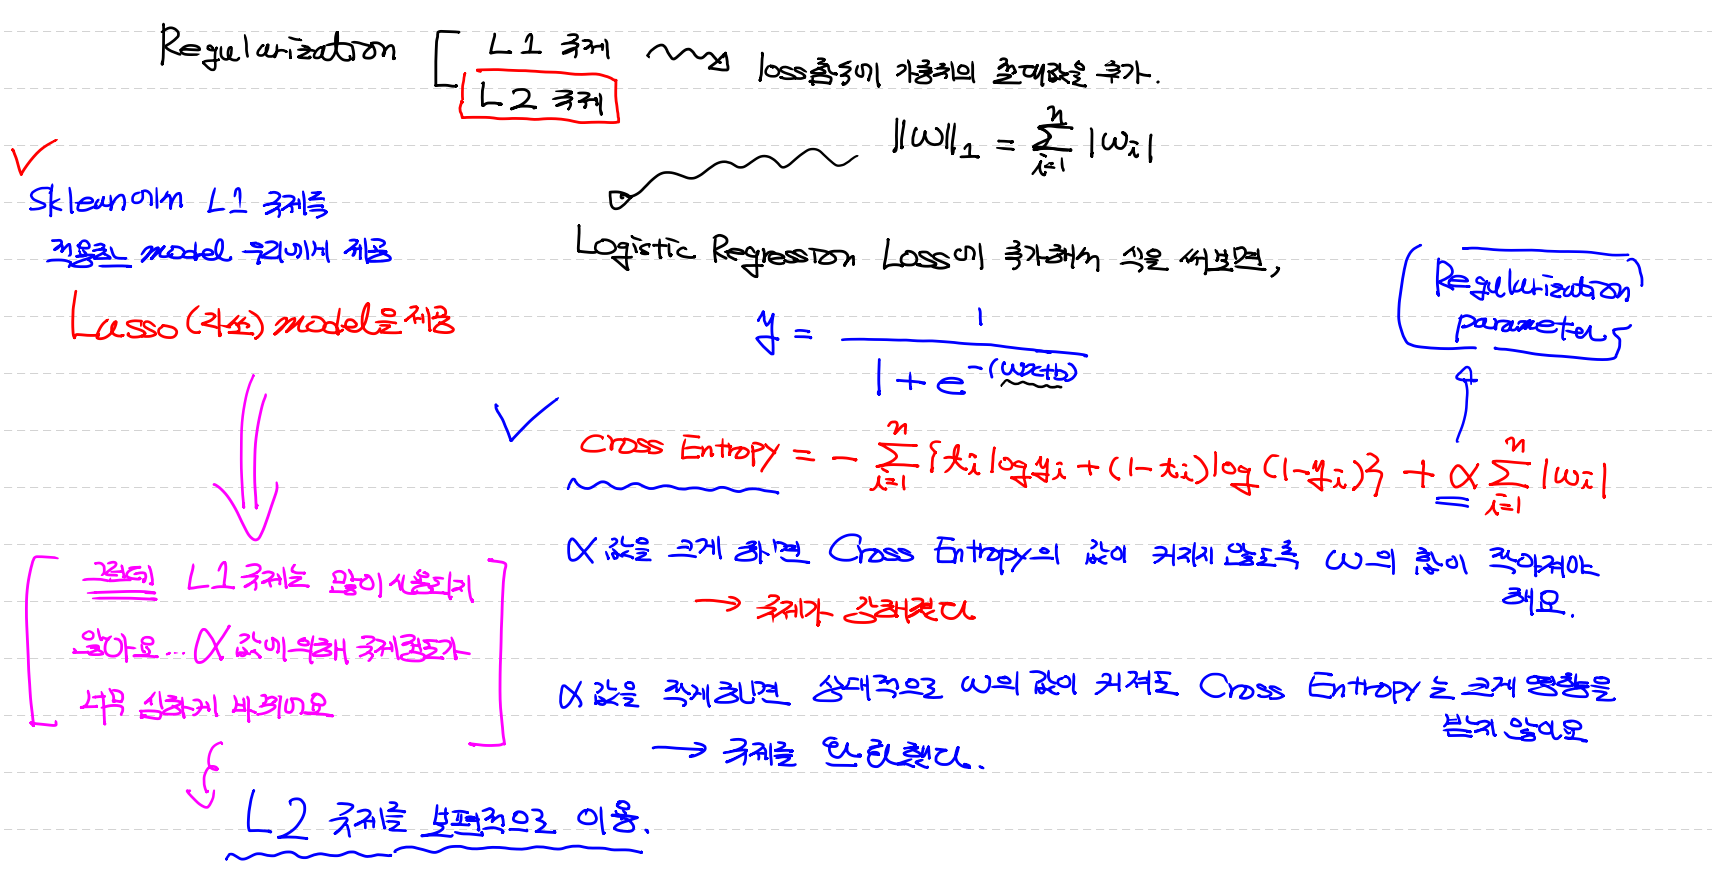 Regularization
L1 규제
L2 규제
loss함수에 가중치의 절대값을 추가.
||W||₁ = Σⁿᵢ₌₁ |wᵢ|
Sklearn에서 L1 규제를
적용하는 model 우리에게 제공
Lasso(라쏘) model을 제공
Logistic Regression Loss에 추가해서 식을 써보면,
y = 1 / (1 + e^-(wx+b))
Regularization
parameter
Cross Entropy = - Σⁿᵢ₌₁ {tᵢ log yᵢ + (1-tᵢ) log (1-yᵢ)} + α Σⁿᵢ₌₁ |wᵢ|
α 값을 크게 하면 Cross Entropy의 값이 커지지 않도록 w의 합이 작아져야
해요.
→ 규제가 강해졌다
α 값을 작게하면 상대적으로 w의 값이 커져도 Cross Entropy는 크게 영향을
받지 않아요
→ 규제를 완화했다.
그런데 L1규제는 많이 사용되지
않아요... α값에 의해 규제정도가
너무 심하게 바뀌어요
L2 규제를 보편적으로 이용.